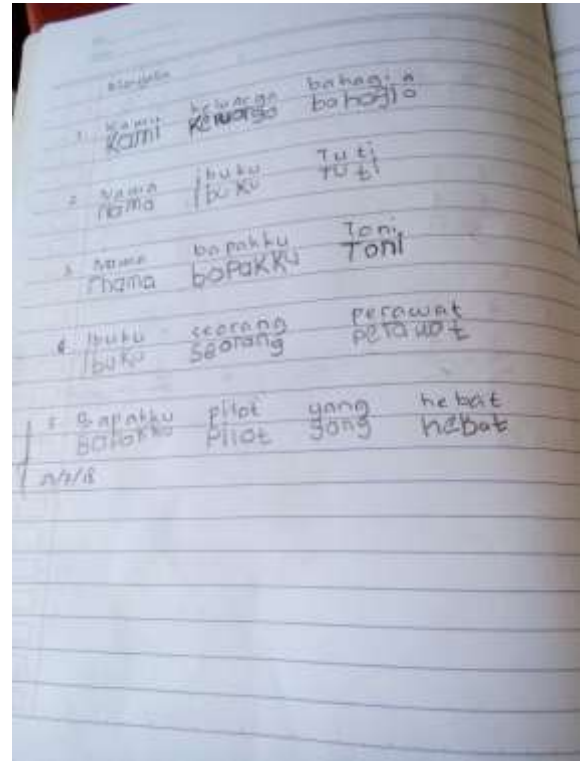 1. Kami keluarga bahagia
Kami keluarga bahagia
2. Nama Ibuku Tuti
nama Ibuku Tuti
3. Nama bapakku Toni
nama bapakku Toni
4. Ibuku seorang perawat
Ibuku seorang perawat
5. Bapakku pilot yang hebat
Bapakku pilot yang hebat